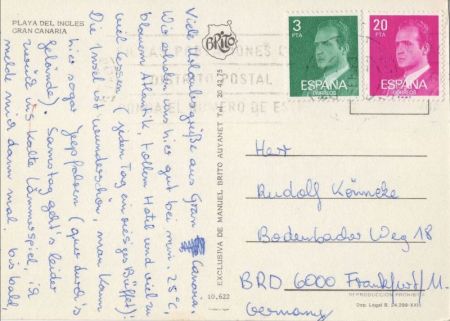 PLAYA DEL INGLES
GRAN CANARIA
Viele Urlaubsgrüße aus Gran Canaria.
Wir ahlen uns hier gut bei min. 25°C,
blauem Atlantik, tollem Hotel und viel zu
viel Essen (jeden Tag ein riesiges Büffet).
Die Insel ist wunderschön, man kann
hier sogar Jeep fahren (quer durch's
Gelände). Samstag geht's leider
zurück ins kalte Lämmerspiel, ich
melde mich dann mal, bis bald,
BRITO
EXCLUSIVA DE MANUEL BRITO AUYANET Tel. 20 42 75
10.622
3
PTA
ESPAÑA
CORREOS
20
PTA
ESPAÑA
CORREOS
DISTRITO POSTAL
Herr
Rudolf Könneke
Bodenbacher Weg 18
BRD 6000 Frankfurt/M.
Germany
REPRODUCCION PROHIBIDA
Dep. Legal B.